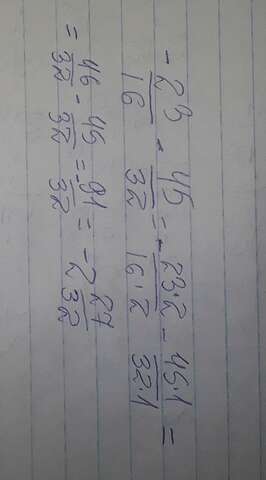 - 23/16 - 45/32 = - 23·2/16·2 - 45·1/32·1 =
= 46/32 - 45/32 = - 91/32 = - 2 27/32